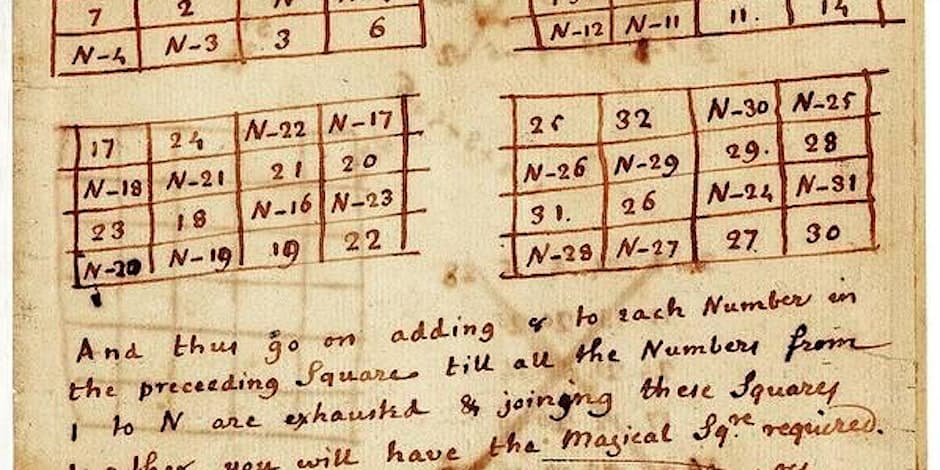 7 2
N-4 N-3 3 6
N-12 N-11 11. 14
17 24 N-22 N-17
N-18 N-21 21 20
23 18 N-16 N-23
N-20 N-19 19 22
25 32 N-30 N-25
N-26 N-29 29. 28
31. 26 N-24 N-31
N-28 N-27 27 30
And thus go on adding 8 to each Number in
the preceeding Square till all the Numbers from
1 to N are exhausted & joining these Squares
you will have the Magical Sq.re required.